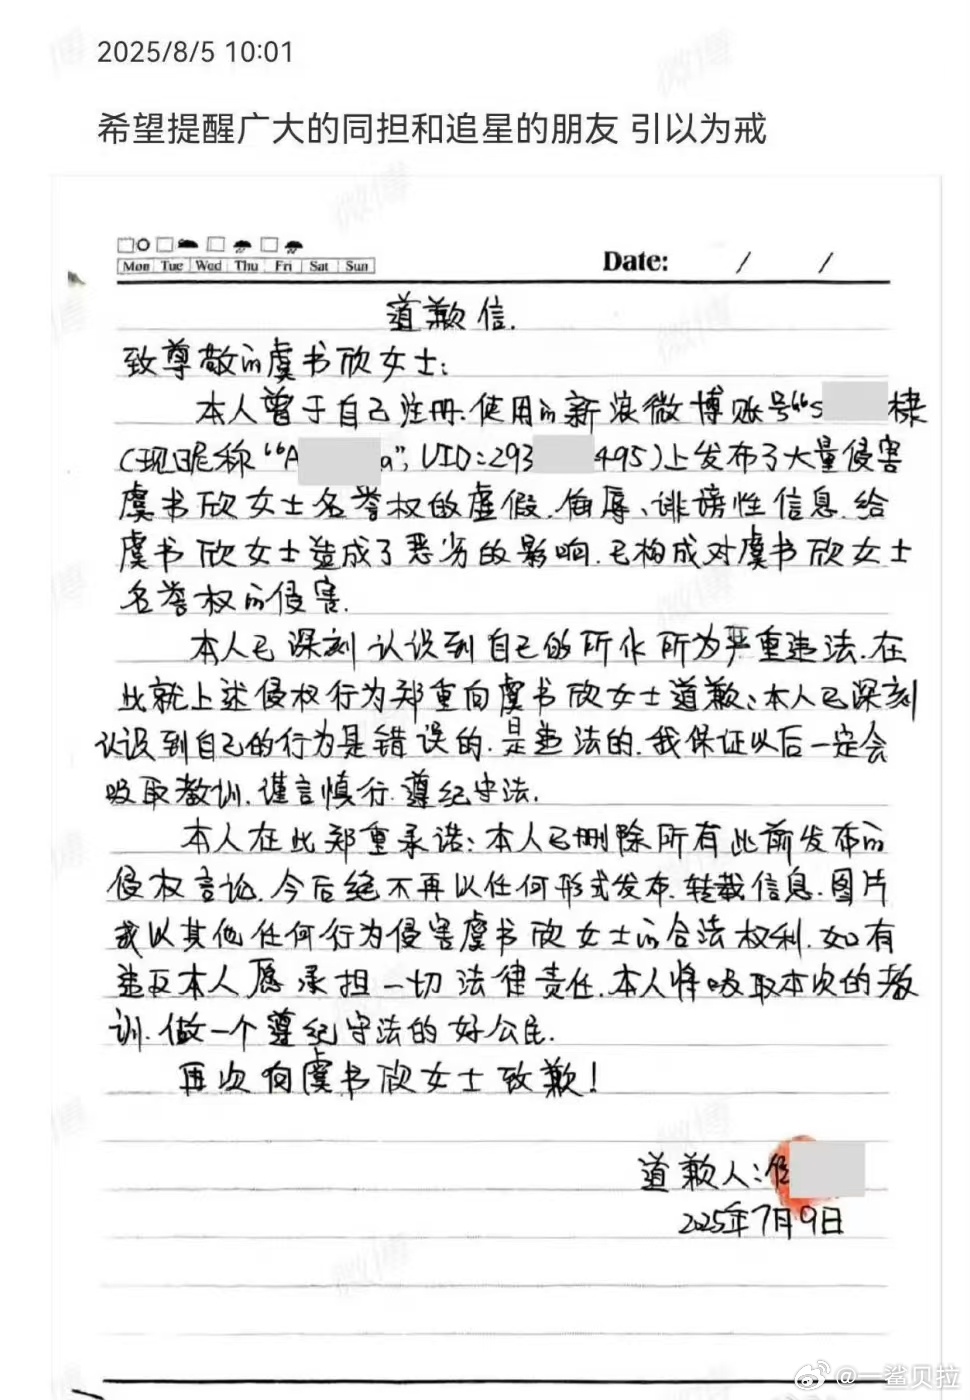 2025/8/5 10:01
希望提醒广大的同担和追星的朋友 引以为戒
Mon Tue Wed Thu Fri Sat Sun
Date: / /
道歉信.
致尊敬的虞书欣女士:
本人曾于自己注册、使用的新浪微博账号“s 棣
(现昵称“A a”, UID:293 495)上发布了大量侵害
虞书欣女士名誉权的虚假、侮辱、诽谤性信息,给
虞书欣女士造成了恶劣的影响,已构成对虞书欣女士
名誉权的侵害.
本人已深刻认识到自己的所作所为严重违法,在
此就上述侵权行为郑重向虞书欣女士道歉:本人已深刻
认识到自己的行为是错误的,是违法的,我保证以后一定会
吸取教训,谨言慎行,遵纪守法.
本人在此郑重承诺:本人已删除所有此前发布的
侵权言论,今后绝不再以任何形式发布、转载信息、图片
或以其他任何行为侵害虞书欣女士的合法权利,如有
违反本人愿承担一切法律责任.本人将吸取本次的教
训,做一个遵纪守法的好公民.
再次向虞书欣女士致歉!
道歉人:
2025年7月9日
@一鲨贝拉